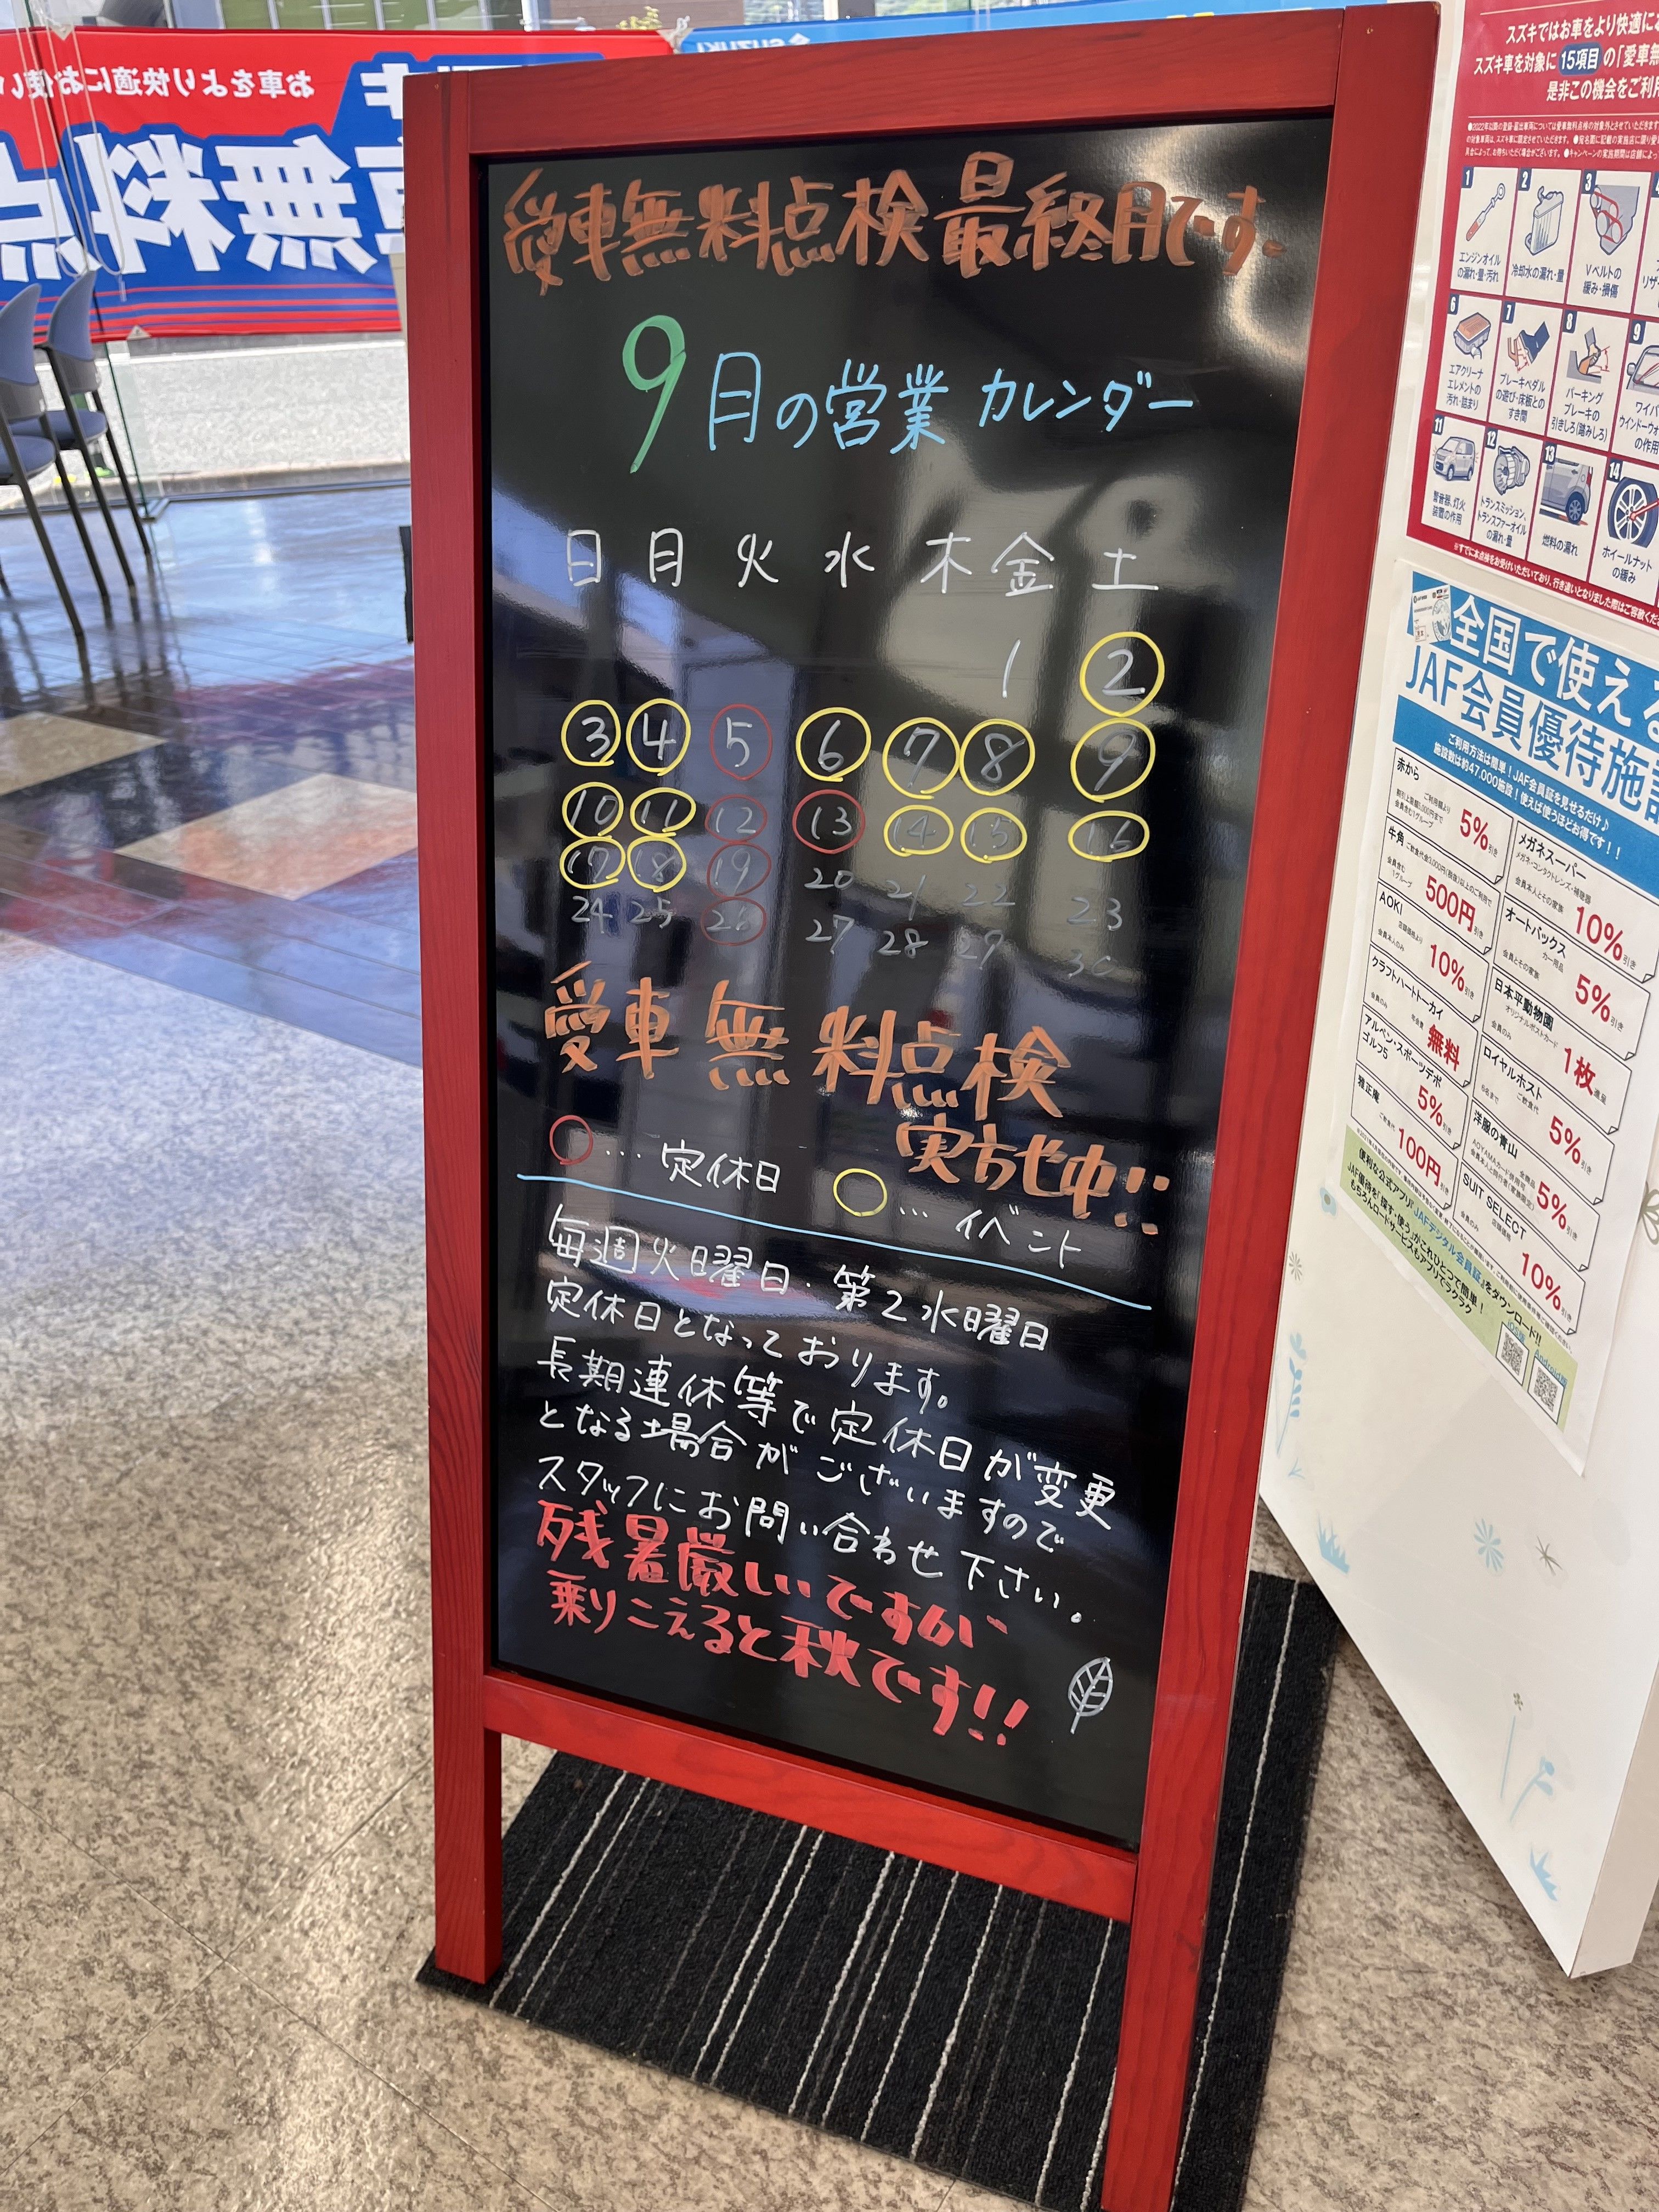 愛車無料点検最終月です
9月の営業カレンダー
日 月 火 水 木 金 土
1 2
3 4 5 6 7 8 9
10 11 12 13 14 15 16
17 18 19 20 21 22 23
24 25 26 27 28 29 30
愛車無料点検
実施中!!
○… 定休日 ○… イベント
毎週火曜日・第2水曜日
定休日となっております。
長期連休等で定休日が変更
となる場合がございますので
スタッフにお問い合わせ下さい。
残暑厳しいですが
乗りこえると秋です!!
お車をより快適にお使い
無料点
SUZUKI
スズキではお車をより快適に
スズキ車を対象に15項目の「愛車無
是非この機会をご利用
1
エンジンオイル
の漏れ・量・汚れ
2
冷却水の漏れ・量
3
Vベルトの
緩み・損傷
6
エアクリーナ
エレメントの
汚れ・詰まり
7
ブレーキペダル
の遊び・床板との
すき間
8
パーキング
ブレーキの
引きしろ(踏みしろ)
9
ワイパ
ウインドーウォ
の作用
11
警音器、灯火
装置の作用
12
トランスミッション、
トランスファーオイル
の漏れ・量
13
燃料の漏れ
14
ホイールナット
の緩み
全国で使える
JAF会員優待施設
ご利用方法は簡単!JAF会員証を見せるだけ♪
施設数は約47,000施設!使えば使うほどお得です!!
赤から
5%引き
メガネスーパー
10%引き
牛角
500円引き
オートバックス
5%引き
AOKI
10%引き
日本平動物園
1枚進呈
クラフトハートトーカイ
無料
ロイヤルホスト
5%引き
アルペン・スポーツデポ
ゴルフ5
5%引き
洋服の青山
5%引き
雅正庵
100円引き
SUIT SELECT
10%引き